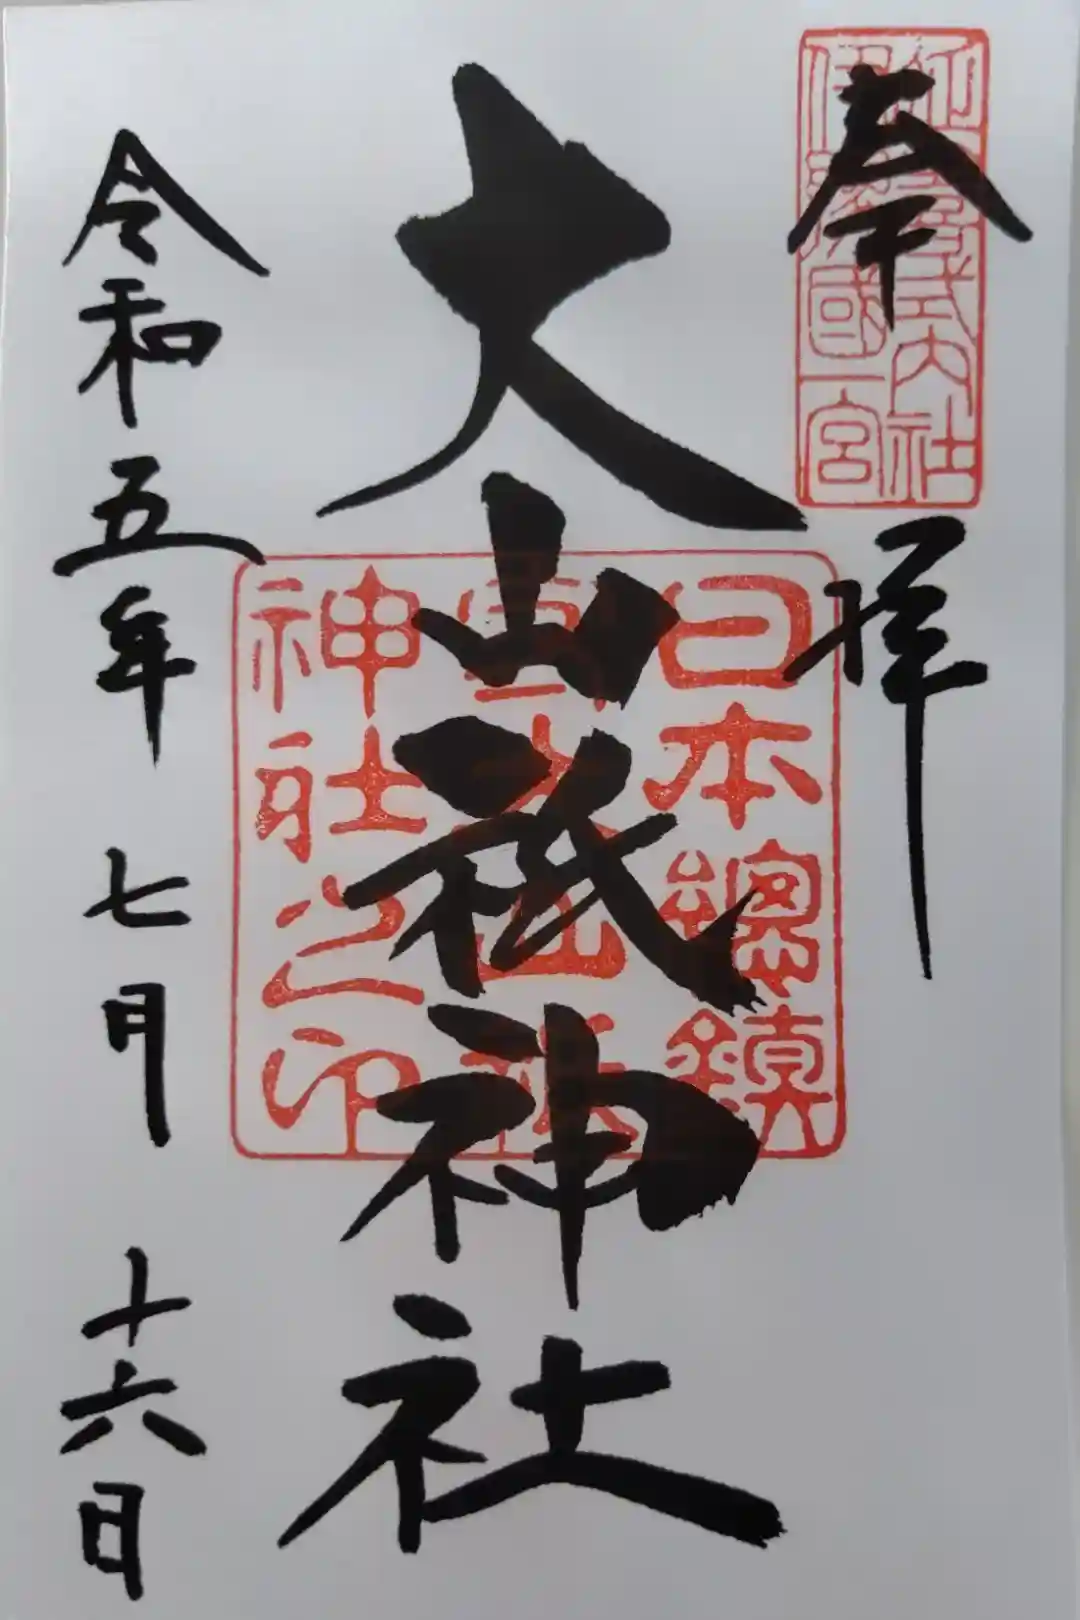 奉拝
延喜式内社
伊豫國一宮
大山祇神社
日本總鎮
守大山祇
神社之印
令和五年七月十六日